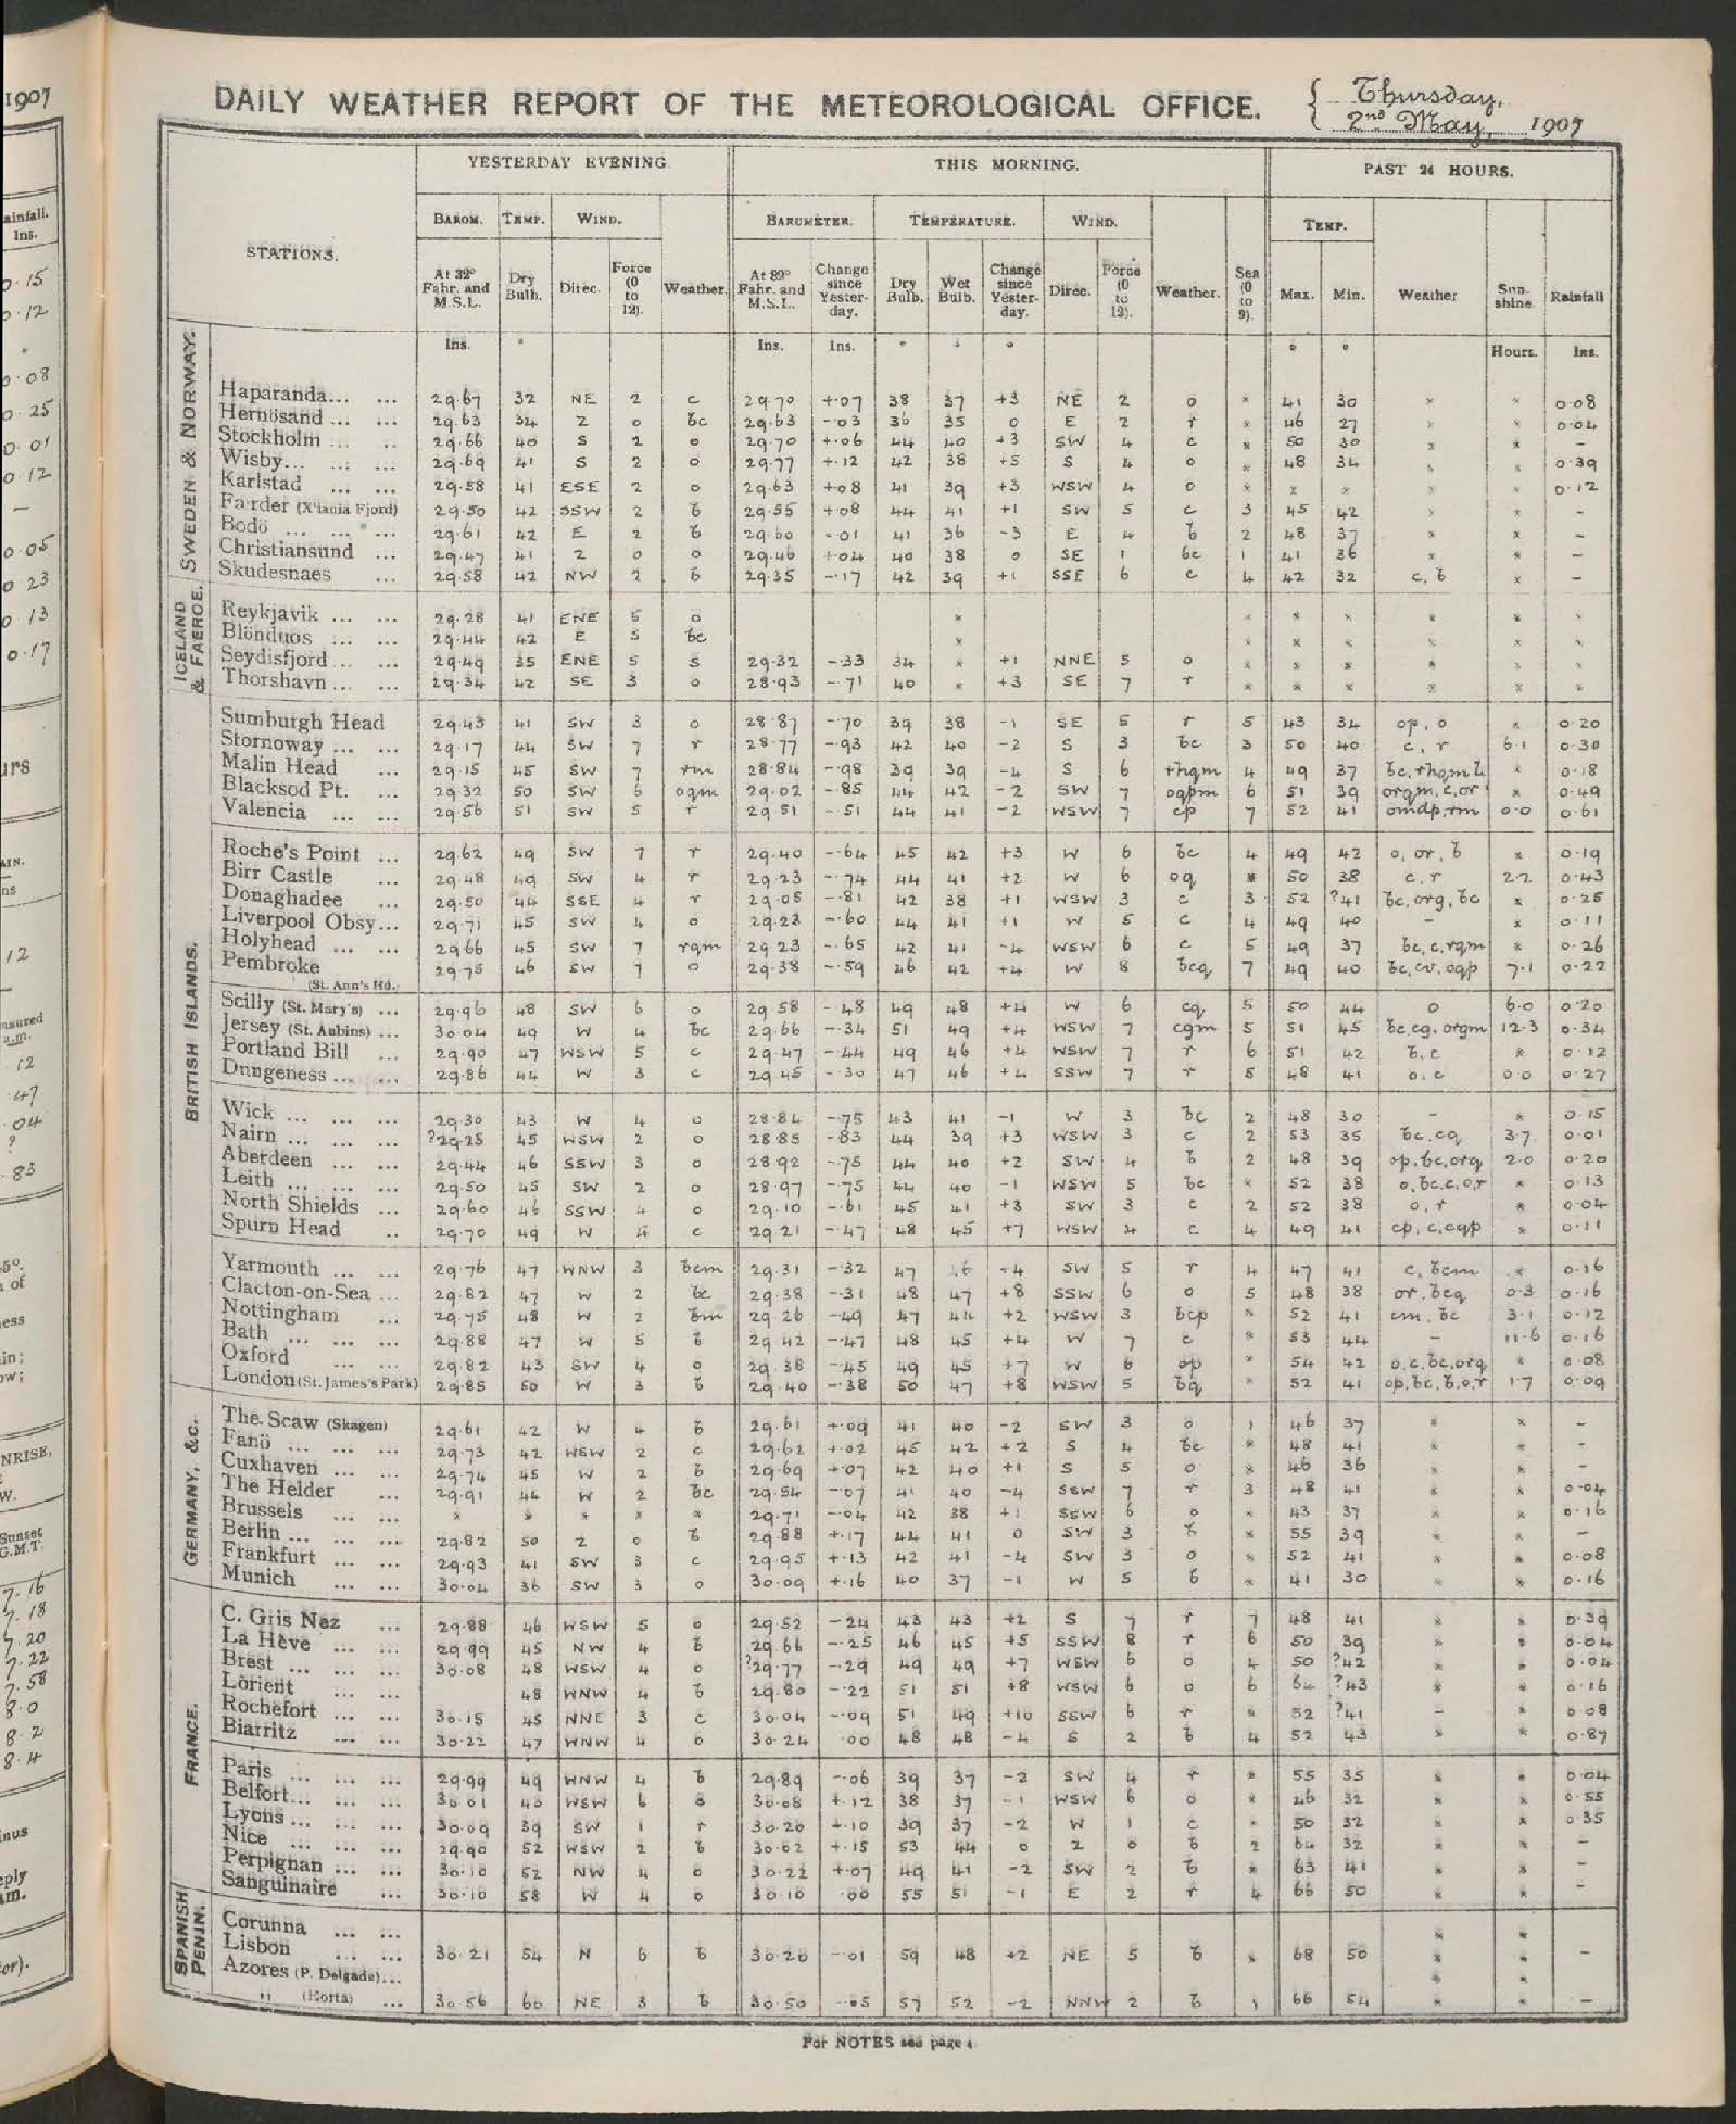 1907
DAILY WEATHER REPORT OF THE METEOROLOGICAL OFFICE. { Thursday,
2nd May, 1907
STATIONS. YESTERDAY EVENING. THIS MORNING. PAST 24 HOURS.
BAROM. TEMP. WIND. Weather. BAROMETER. TEMPERATURE. WIND. Weather. Sea (0 to 9). TEMP. Weather Sunshine. Rainfall
At 32° Fahr. and M.S.L. Dry Bulb. Direc. Force (0 to 12). At 32° Fahr. and M.S.L. Change since Yesterday. Dry Bulb. Wet Bulb. Change since Yesterday. Direc. Force (0 to 12). Max. Min.
Ins. ° Ins. Ins. ° ° ° ° ° Hours. Ins.
SWEDEN & NORWAY.
Haparanda... ... 29.67 32 NE 2 c 29.70 +.07 38 37 +3 NE 2 o * 41 30 * * 0.08
Hernösand ... ... 29.63 34 Z 0 bc 29.63 -.03 36 35 0 E 2 r * 46 27 * * 0.04
Stockholm ... .. 29.66 40 S 2 o 29.70 +.06 44 40 +3 SW 4 c * 50 30 * * -
Wisby... ... ... 29.69 41 S 2 o 29.77 +.12 42 38 +5 S 4 o * 48 34 * * 0.39
Karlstad ... ... 29.58 41 ESE 2 o 29.63 +.08 41 39 +3 WSW 4 o * * * * * 0.12
Faerder (X'iania Fjord) 29.50 42 SSW 2 b 29.55 +.08 44 41 +1 SW 5 c 3 45 42 * * -
Bodö ... ... ... 29.61 42 E 2 b 29.60 -.01 41 36 -3 E 4 b 2 48 37 * * -
Christiansund ... 29.47 41 Z 0 o 29.46 +.04 40 38 0 SE 1 bc 1 41 36 * * -
Skudesnaes ... 29.58 42 NW 2 b 29.35 -.17 42 39 +1 SSE 6 c 4 42 32 c, b * -
ICELAND & FAEROE.
Reykjavik ... ... 29.28 41 ENE 5 o * * * * * * *
Blönduos ... ... 29.44 42 E 5 bc * * * * * * *
Seydisfjord... ... 29.49 35 ENE 5 s 29.32 -.33 34 * +1 NNE 5 o * * * * * *
Thorshavn ... ... 29.34 42 SE 3 o 28.93 -.71 40 * +3 SE 7 r * * * * * *
BRITISH ISLANDS.
Sumburgh Head 29.43 41 SW 3 o 28.87 -.70 39 38 -1 SE 5 r 5 43 34 op, o * 0.20
Stornoway ... ... 29.17 44 SW 7 r 28.77 -.93 42 40 -2 S 3 bc 3 50 40 c, r 6.1 0.30
Malin Head ... 29.15 45 SW 7 rm 28.84 -.98 39 39 -4 S 6 rhqm 4 49 37 bc, rhqm * 0.18
Blacksod Pt. ... 29.32 50 SW 6 oqm 29.02 -.85 44 42 -2 SW 7 oqpm 6 51 39 orqm, c, or * 0.49
Valencia ... ... 29.56 51 SW 5 r 29.51 -.51 44 41 -2 WSW 7 cp 7 52 41 omdp, rm 0.0 0.61
Roche's Point ... 29.62 49 SW 7 r 29.40 -.64 45 42 +3 W 6 bc 4 49 42 o, or, b * 0.19
Birr Castle ... 29.48 49 SW 4 r 29.23 -.74 44 41 +2 W 6 oq * 50 38 c, r 2.2 0.43
Donaghadee ... 29.50 44 SSE 4 r 29.05 -.81 42 38 +1 WSW 3 c 3 52 ?41 bc, org, bc * 0.25
Liverpool Obsy... 29.71 45 SW 4 o 29.23 -.60 44 41 +1 W 5 c 4 49 40 - * 0.11
Holyhead ... ... 29.66 45 SW 7 rqm 29.23 -.65 42 41 -4 WSW 6 c 5 49 37 bc, c, rqm * 0.26
Pembroke (St. Ann's Hd.) 29.75 46 SW 7 o 29.38 -.59 46 42 +4 W 8 bcq 7 49 40 bc, cv, oqp 7.1 0.22
Scilly (St. Mary's) ... 29.96 48 SW 6 o 29.58 -.48 49 48 +4 W 6 cq 5 50 44 o 6.0 0.20
Jersey (St. Aubins) ... 30.04 49 W 4 bc 29.66 -.34 51 49 +4 WSW 7 cqm 5 51 45 bc, cq, orqm 12.3 0.34
Portland Bill ... 29.90 47 WSW 5 c 29.47 -.44 49 46 +4 WSW 7 r 6 51 42 b, c * 0.12
Dungeness ... ... 29.86 44 W 3 c 29.45 -.30 47 46 +4 SSW 7 r 5 48 41 o, c 0.0 0.27
Wick ... ... ... 29.30 43 W 4 o 28.84 -.75 43 41 -1 W 3 bc 2 48 30 - * 0.15
Nairn ... ... ... ?29.25 45 WSW 2 o 28.85 -.83 44 39 +3 WSW 3 c 2 53 35 bc, cq 3.7 0.01
Aberdeen ... ... 29.44 46 SSW 3 o 28.92 -.75 44 40 +2 SW 4 b 2 48 39 op, bc, orq 2.0 0.20
Leith ... ... ... 29.50 45 SW 2 o 28.97 -.75 44 40 -1 WSW 5 bc * 52 38 o, bc, c, o, r * 0.13
North Shields ... 29.60 46 SSW 4 o 29.10 -.61 45 41 +3 SW 3 c 2 52 38 o, r * 0.04
Spurn Head .. 29.70 49 W 4 c 29.21 -.47 48 45 +7 WSW 4 c 4 49 41 cp, c, cqp * 0.11
Yarmouth ... ... 29.76 47 WNW 3 bcm 29.31 -.32 47 46 +4 SW 5 r 4 47 41 c, bcm * 0.16
Clacton-on-Sea ... 29.82 47 W 2 bc 29.38 -.31 48 47 +8 SSW 6 o 5 48 38 or, bcq 0.3 0.16
Nottingham ... 29.75 48 W 2 bm 29.26 -.49 47 44 +2 WSW 3 bcp * 52 41 cm, bc 3.1 0.12
Bath ... ... ... 29.88 47 W 5 b 29.42 -.47 48 45 +4 W 7 c * 53 44 - 11.6 0.16
Oxford ... ... 29.82 43 SW 4 o 29.38 -.45 49 45 +7 W 6 op * 54 42 o, c, bc, orq * 0.08
London (St. James's Park) 29.85 50 W 3 b 29.40 -.38 50 47 +8 WSW 5 bq * 52 41 op, bc, b, o, r 1.7 0.09
GERMANY, &c.
The Scaw (Skagen) 29.61 42 W 4 b 29.61 +.09 41 40 -2 SW 3 o 1 46 37 * * -
Fanö ... ... ... 29.73 42 WSW 2 c 29.62 +.02 45 42 +2 S 4 bc * 48 41 * * -
Cuxhaven ... ... 29.74 45 W 2 b 29.69 +.07 42 40 +1 S 5 o * 46 36 * * -
The Helder ... 29.91 44 W 2 bc 29.54 -.07 41 40 -4 SSW 7 r 3 48 41 * * 0.04
Brussels ... ... * * * * * 29.71 -.04 42 38 +1 SSW 6 o * 43 37 * * 0.16
Berlin ... ... ... 29.82 50 Z 0 b 29.88 +.17 44 41 0 SW 3 b * 55 39 * * -
Frankfurt ... ... 29.93 41 SW 3 c 29.95 +.13 42 41 -4 SW 3 o * 52 41 * * 0.08
Munich ... ... 30.04 36 SW 3 o 30.09 +.16 40 37 -1 W 5 b * 41 30 * * 0.16
FRANCE.
C. Gris Nez ... 29.88 46 WSW 5 o 29.52 -.24 43 43 +2 S 7 r 7 48 41 * * 0.39
La Hève ... ... 29.99 45 NW 4 b 29.66 -.25 46 45 +5 SSW 8 r 6 50 39 * * 0.04
Brest ... ... ... 30.08 48 WSW 4 o ?29.77 -.29 49 49 +7 WSW 6 o 4 50 ?42 * * 0.04
Lorient ... ... 48 WNW 4 b 29.80 -.22 51 51 +8 WSW 6 o 6 64 ?43 * * 0.16
Rochefort ... ... 30.15 45 NNE 3 c 30.04 -.09 51 49 +10 SSW 6 r * 52 ?41 - * 0.08
Biarritz ... ... 30.22 47 WNW 4 o 30.24 .00 48 48 -4 S 2 b 4 52 43 * * 0.87
Paris ... ... ... 29.99 49 WNW 4 b 29.89 -.06 39 37 -2 SW 4 r * 55 35 * * 0.04
Belfort... ... ... 30.01 40 WSW 6 o 30.08 +.12 38 37 -1 WSW 6 o * 46 32 * * 0.55
Lyons ... ... ... 30.09 39 SW 1 r 30.20 +.10 39 37 -2 W 1 c * 50 32 * * 0.35
Nice ... ... ... 29.90 52 WSW 2 b 30.02 +.15 53 44 0 Z 0 b 2 64 32 * * -
Perpignan ... ... 30.10 52 NW 4 o 30.22 +.07 49 41 -2 SW 2 b * 63 41 * * -
Sanguinaire ... 30.10 58 W 4 o 30.10 .00 55 51 -1 E 2 r 4 66 50 * * -
SPANISH PENIN.
Corunna ... ... * *
Lisbon ... ... 30.21 54 N 6 b 30.20 -.01 59 48 +2 NE 5 b * 68 50 * * -
Azores (P. Delgada)... * *
" (Horta) ... 30.56 60 NE 3 b 30.50 -.05 57 52 -2 NNW 2 b 1 66 54 * * -
For NOTES see page 4